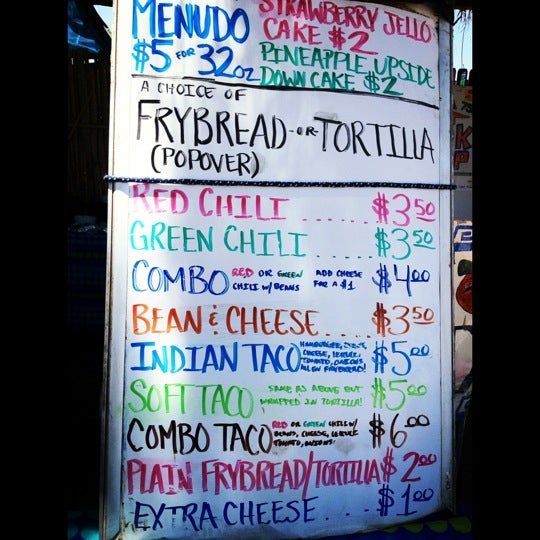 MENUDO
$5 FOR 32oz
STRAWBERRY JELLO
CAKE $2
PINEAPPLE UPSIDE
DOWN CAKE $2
A CHOICE OF
FRYBREAD -OR- TORTILLA
(POPOVER)
RED CHILI ...... $3.50
GREEN CHILI ..... $3.50
COMBO RED OR GREEN CHILI W/ BEANS ADD CHEESE FOR A $1 $4.00
BEAN & CHEESE.... $3.50
INDIAN TACO HAMBURGER, CHEESE, LETTUCE, TOMATO, ONIONS FRYBREAD! $5.00
SOFT TACO SAME AS ABOVE BUT WRAPPED IN TORTILLA! $5.00
COMBO TACO RED OR GREEN CHILI W/ BEANS, CHEESE, LETTUCE TOMATO, ONIONS! $6.00
PLAIN FRYBREAD/TORTILLA $2.00
EXTRA CHEESE... $1.00